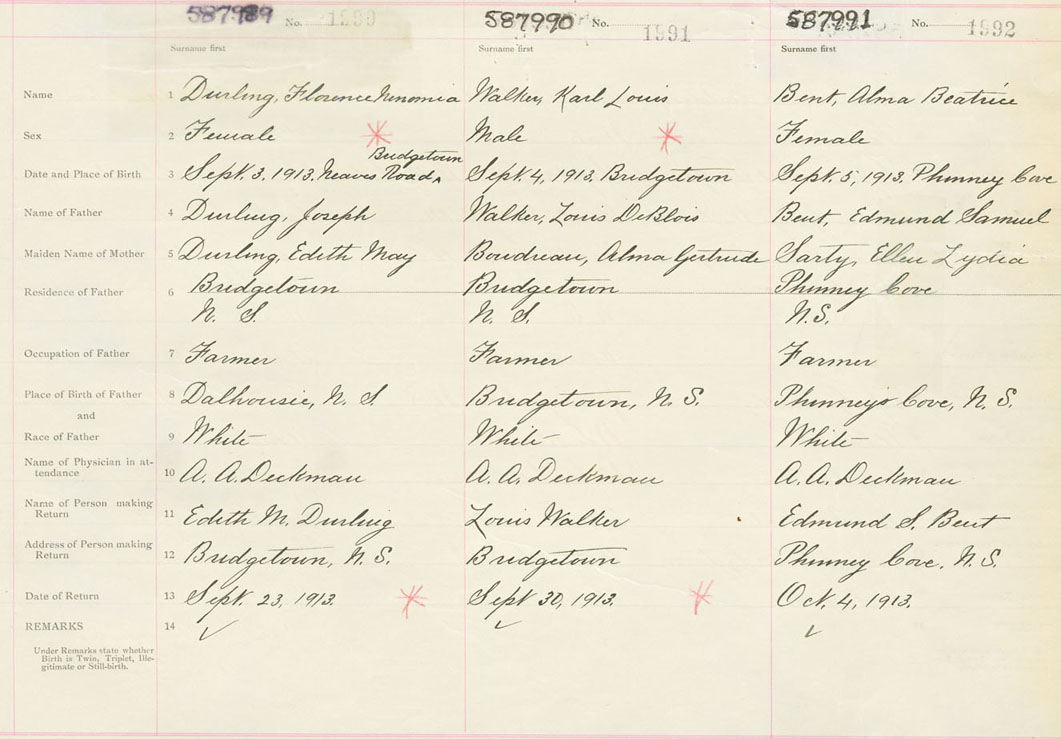 587989 No. 1990 587990 No. 1991 587991 No. 1992
Surname first Surname first Surname first
Name 1 Durling, Florence Walker, Karl Louis Bent, Alma Beatrice
Sex 2 Female Male Female
Bridgetown
Date and Place of Birth 3 Sept. 3, 1913. Neaves Road Sept. 4, 1913, Bridgetown Sept. 5, 1913. Phinney Cove
Name of Father 4 Durling, Joseph Walker, Louis DeBlois Bent, Edmund Samuel
Maiden Name of Mother 5 Durling, Edith May Boudreau, Alma Gertrude Sarty, Ellen Lydia
Residence of Father 6 Bridgetown Bridgetown Phinney Cove
N. S. N. S. N.S.
Occupation of Father 7 Farmer Farmer Farmer
Place of Birth of Father 8 Dalhousie, N. S. Bridgetown, N. S. Phinneys Cove, N. S.
and
Race of Father 9 White White White
Name of Physician in at-
tendance 10 A. A. Deckman A. A. Deckman A. A. Deckman
Name of Person making
Return 11 Edith M. Durling Louis Walker Edmund S. Bent
Address of Person making
Return 12 Bridgetown, N. S. Bridgetown Phinney Cove, N. S.
Date of Return 13 Sept. 23, 1913. Sept 30, 1913. Oct. 4, 1913.
REMARKS 14
Under Remarks state whether
Birth is Twin, Triplet, Ille-
gitimate or Still-birth.